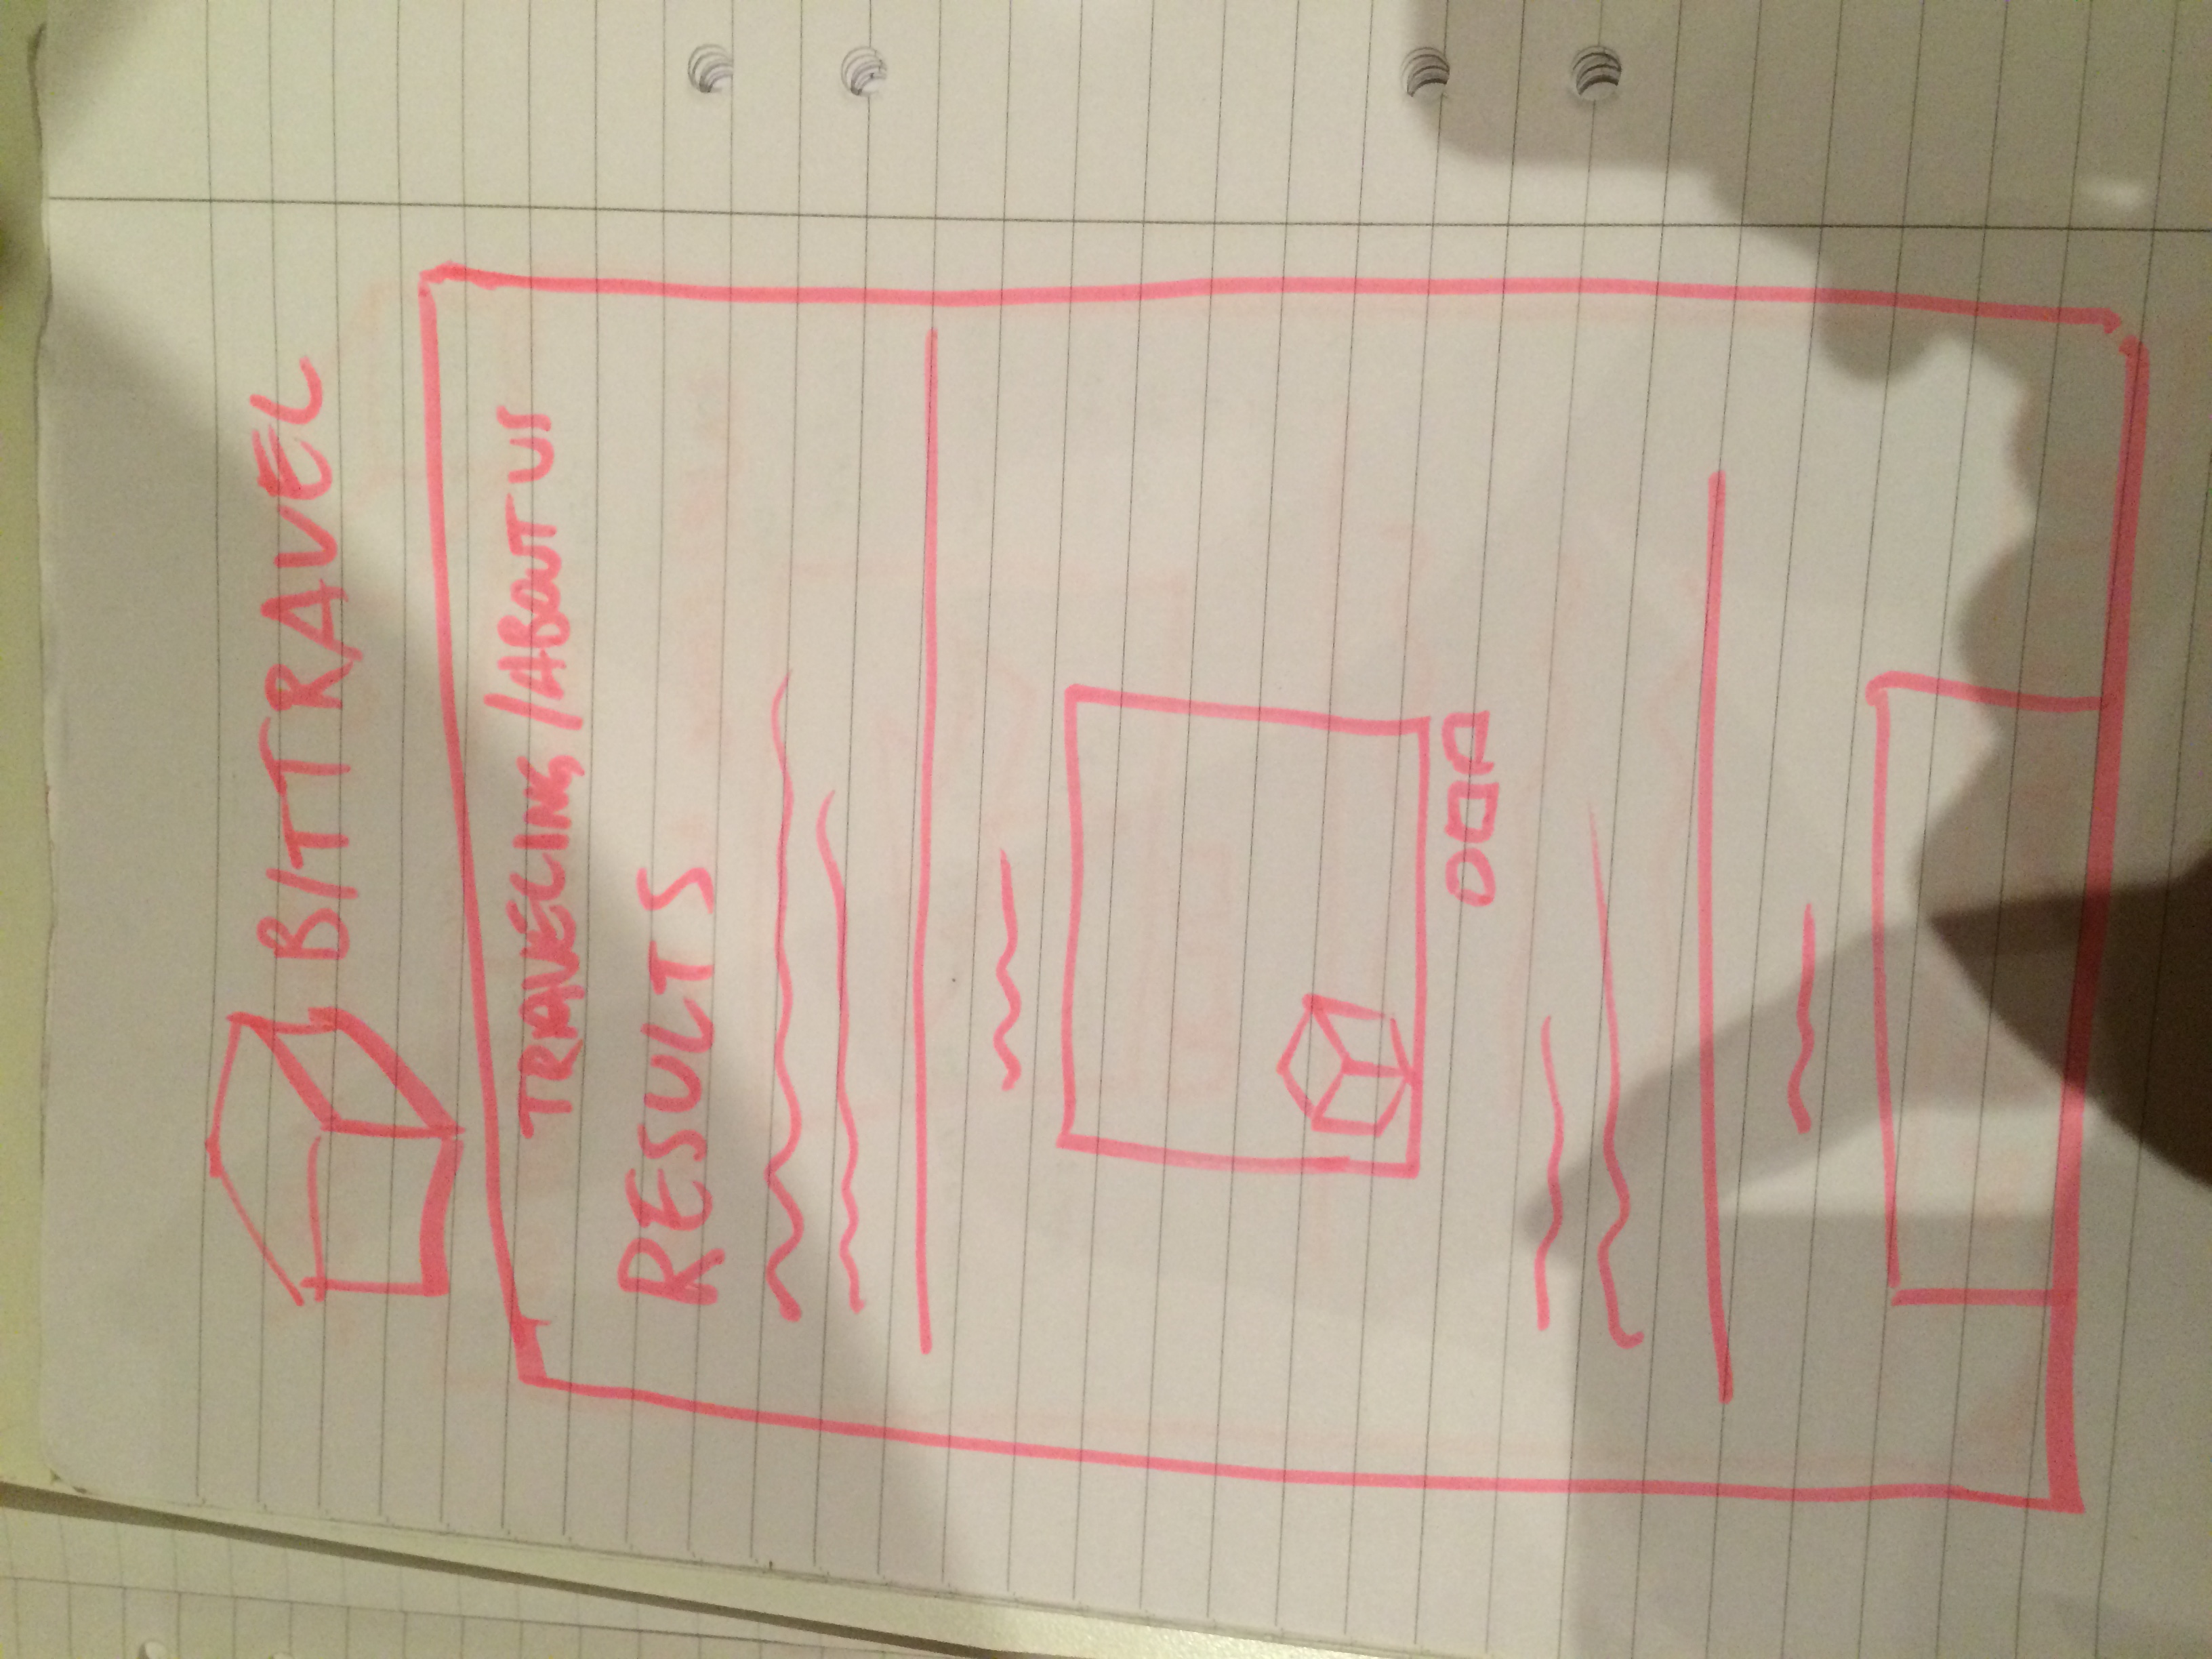 BITTRAVEL
TRAVELING/ABOUT US
RESULTS